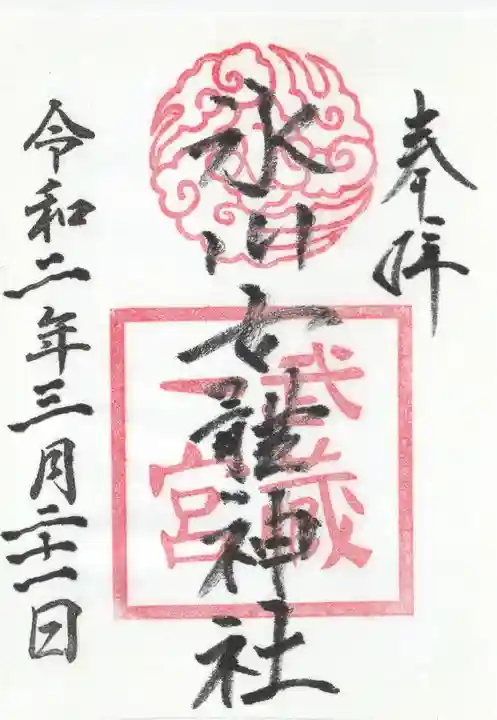 奉拜
氷川女體神社
武蔵
一宮
令和二年三月二十一日